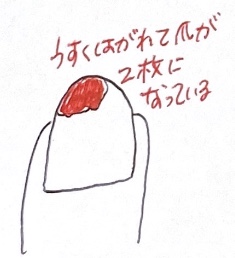 うすくはがれて爪が
2枚に
なっている